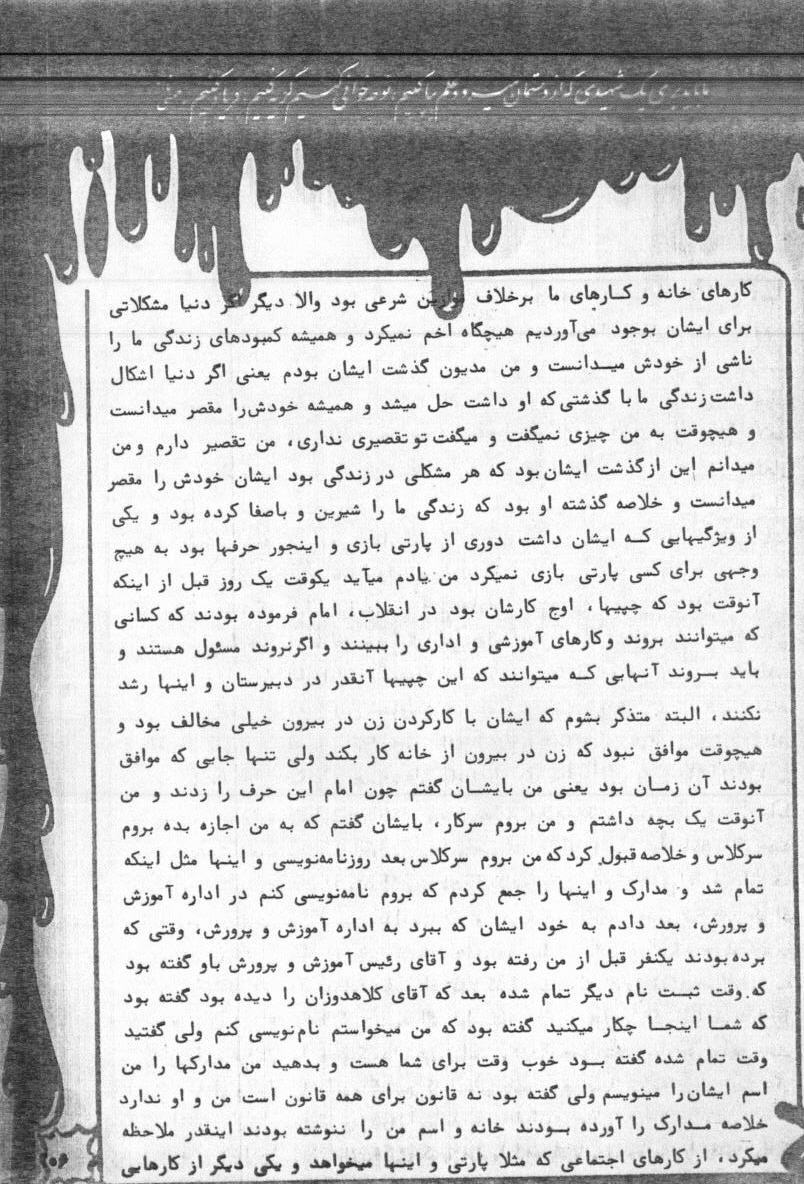 ما باید برای یک شهیدی که از دستمان میرود علم بپا کنیم نوحه خوانی کنیم گریه کنیم فریاد کنیم
کارهای خانه و کـارهای ما برخلاف موازین شرعی بود والا دیگر اگر دنیا مشکلاتی
برای ایشان بوجود می‌آوردیم هیچگاه اخم نمیکرد و همیشه کمبودهای زندگی ما را
ناشی از خودش میـدانست و من مدیون گذشت ایشان بودم یعنی اگر دنیا اشکال
داشت زندگی ما با گذشتی که او داشت حل میشد و همیشه خودش را مقصر میدانست
و هیچوقت به من چیزی نمیگفت و میگفت تو تقصیری نداری، من تقصیر دارم و من
میدانم این از گذشت ایشان بود که هر مشکلی در زندگی بود ایشان خودش را مقصر
میدانست و خلاصه گذشته او بود که زندگی ما را شیرین و باصفا کرده بود و یکی
از ویژگیهایی کـه ایشان داشت دوری از پارتی بازی و اینجور حرفها بود به هیچ
وجهی برای کسی پارتی بازی نمیکرد من یادم میآید یکوقت یک روز قبل از اینکه
آنوقت بود که چپیها، اوج کارشان بود در انقلاب، امام فرموده بودند که کسانی
که میتوانند بروند و کارهای آموزشی و اداری را ببینند و اگر نروند مسئول هستند و
باید بـروند آنهایی کـه میتوانند که این چپیها آنقدر در دبیرستان و اینها رشد
نکنند، البته متذکر بشوم که ایشان با کارکردن زن در بیرون خیلی مخالف بود و
هیچوقت موافق نبود که زن در بیرون از خانه کار بکند ولی تنها جایی که موافق
بودند آن زمـان بود یعنی من بایشـان گفتم چون امام این حرف را زدند و من
آنوقت یک بچه داشتم و من بروم سرکار، بایشان گفتم که به من اجازه بده بروم
سرکلاس و خلاصه قبول کرد که من بروم سرکلاس بعد روزنامه‌نویسی و اینها مثل اینکه
تمام شد و مدارک و اینها را جمع کردم که بروم نامه‌نویسی کنم در اداره آموزش
و پرورش، بعد دادم به خود ایشان که ببرد به اداره آموزش و پرورش، وقتی که
برده بودند یکنفر قبل از من رفته بود و آقای رئیس آموزش و پرورش باو گفته بود
که وقت ثبـت نام دیگر تمام شده بعد که آقای کلاهدوزان را دیده بود گفته بود
که شمـا اینجـا چکار میکنید گفته بود که من میخواستم نام‌نویسی کنم ولی گفتید
وقت تمام شده گفته بـود خوب وقت برای شما هست و بدهید من مدارکها را من
اسم ایشان را مینویسم ولی گفته بود نه قانون برای همه قانون است من و او ندارد
خلاصه مـدارک را آورده بـودند خانه و اسم من را ننوشته بودند اینقدر ملاحظه
میکرد، از کارهای اجتماعی که مثلا پارتی و اینها میخواهد و یکی دیگر از کارهایی